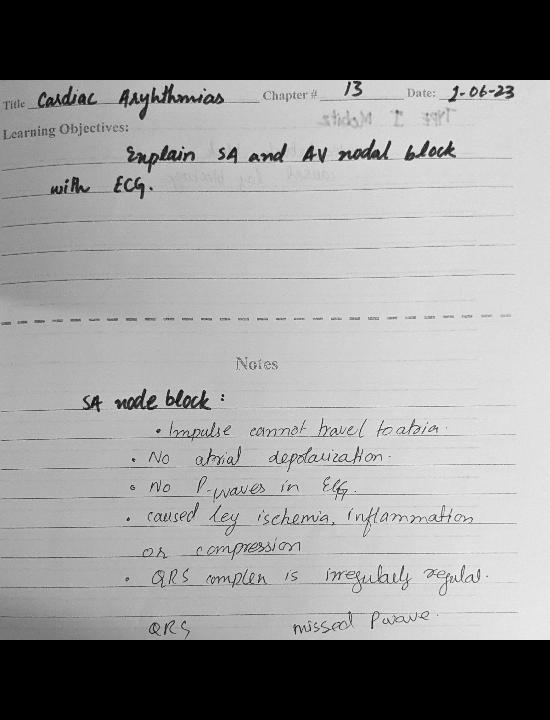 Title Cardiac Aryhthmias Chapter # 13 Date: 1-06-23
Type I Mobitz
Learning Objectives:
Explain SA and AV nodal block
with ECG.
Notes
SA node block :
• Impulse cannot travel to atria.
• No atrial depolarization.
• No P-waves in ECG.
• caused by ischemia, inflammation
or compression
• QRS complex is irregularly regular.
QRS missed P wave.